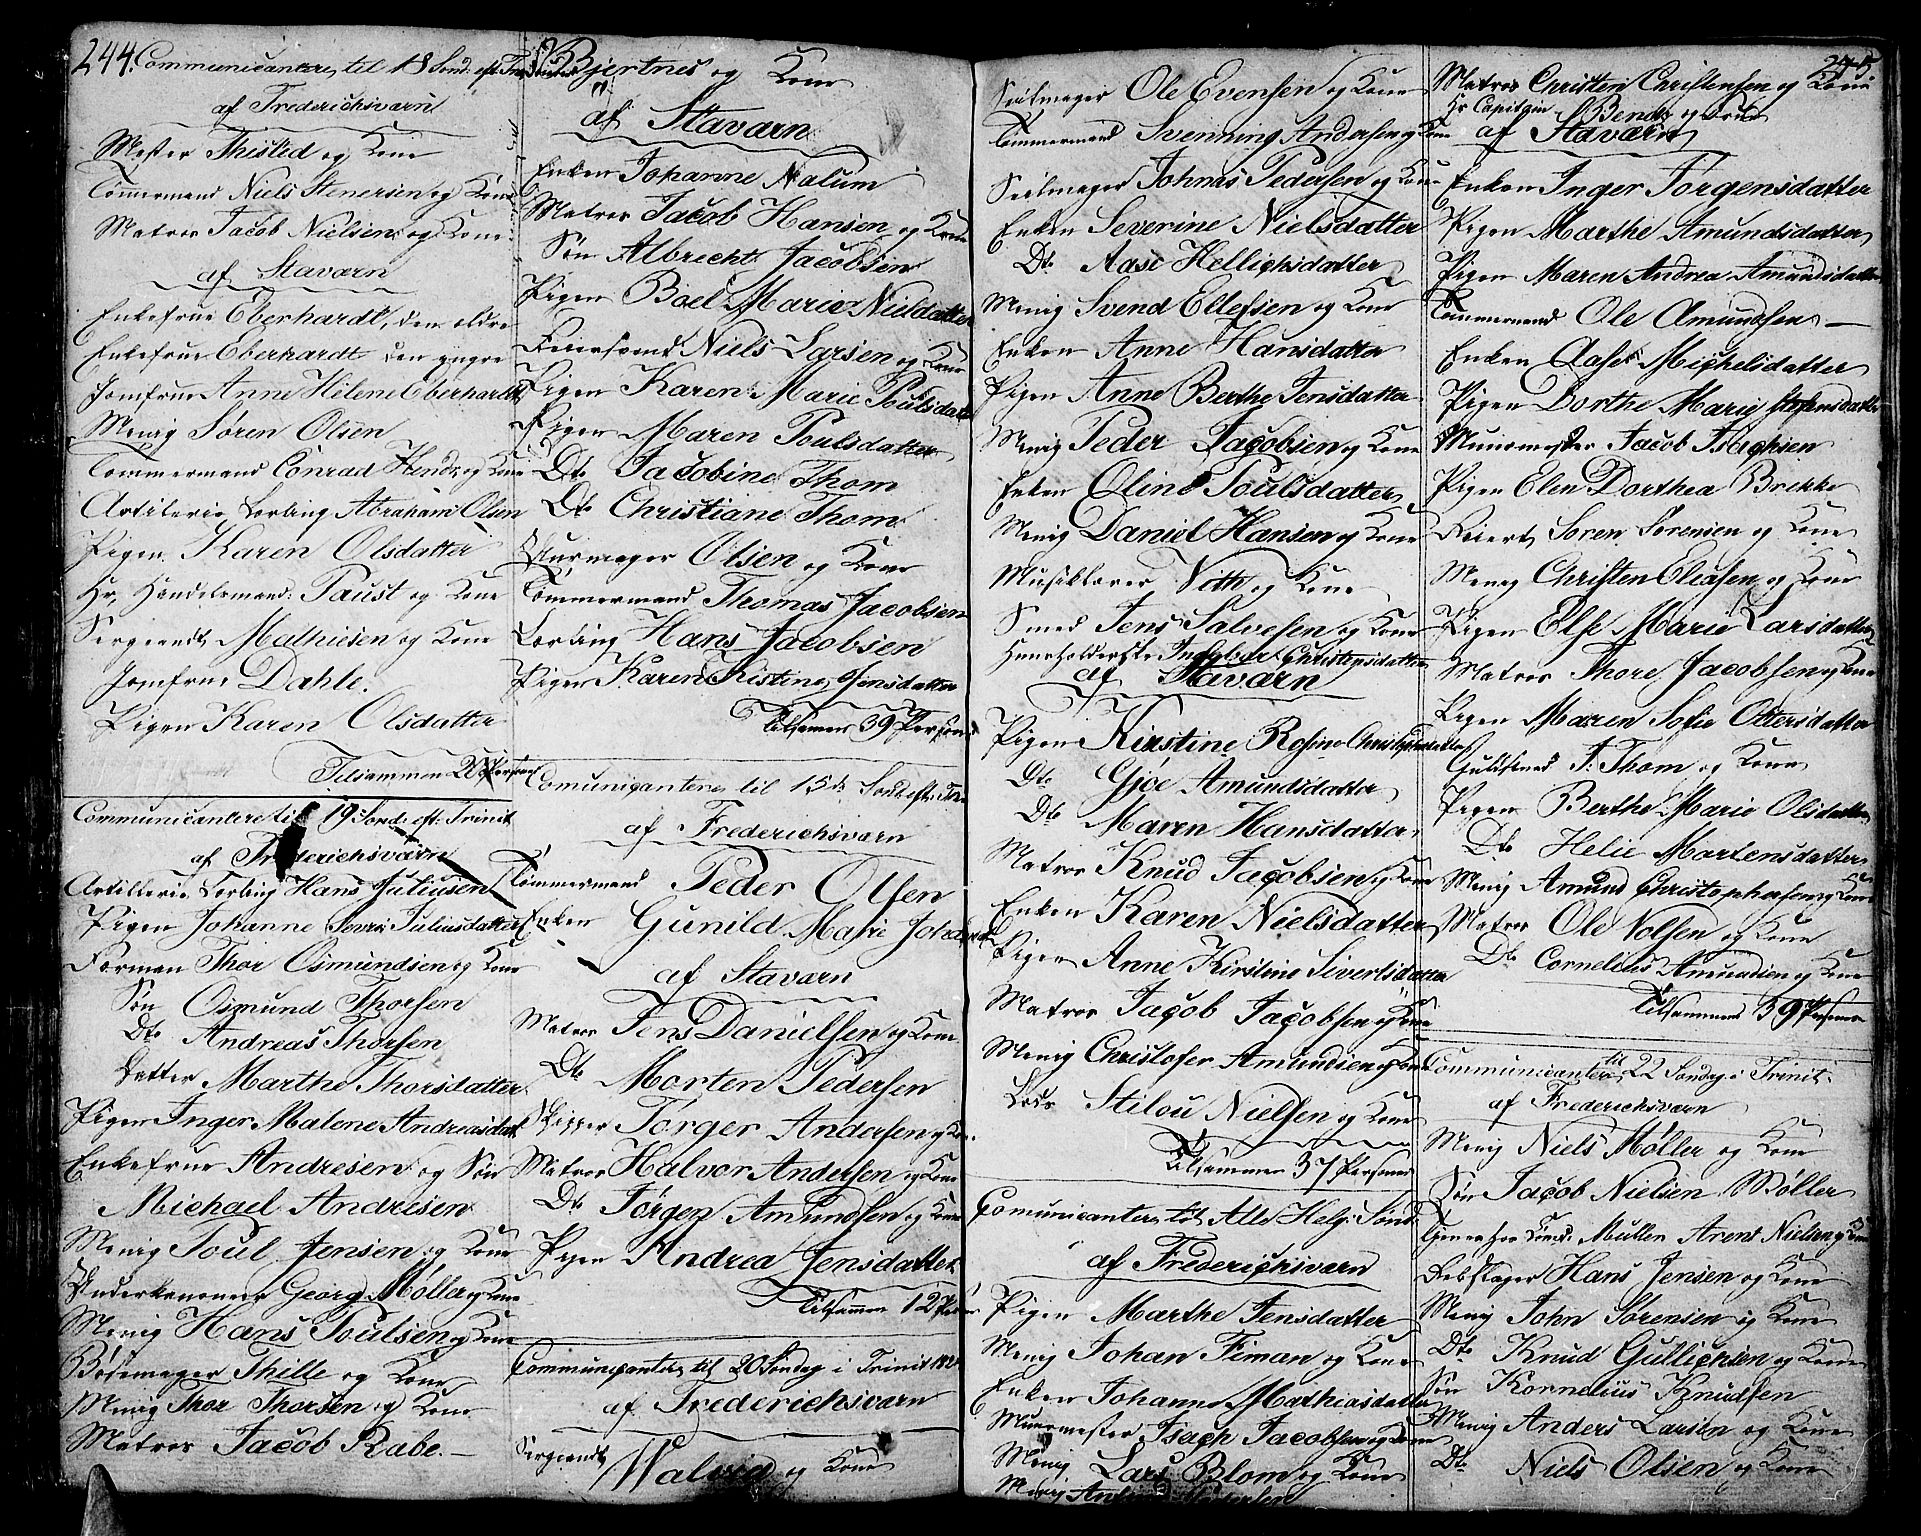 244. Communicantere til 18 Sønd: eft. Trinitatis
af Frederichsværn
Mester Thisted og Kone
Tømmermand Niels Stenersen og Kone
Matros Jacob Nielsen og Kone
af Staværn
Enkefrue Eberhardt, den eldre
Enkefrue Eberhardt den yngre
Jomfrue Anne Helene Eberhardt
Menig Søren Olsen
Tømmermand Conrad Hendr: og Kone
Artilerie Lærling Abraham Olsen
Pigen Karen Olsdatter
Hr. Handelsmand Paust og Kone
Sergeandt Mathiesen og Kone
Jomfrue Dahle.
Pigen Karen Olsdatter
Tilsammen Personer
Communicantere til 19 Sønd: eft: Trinit
af Frederichsværn
Artillerie Lærling Hans Juliusen
Pigen Johanne Sovri Juliusdatter
Forman Thor Osmundsen og Kone
Søn Osmund Thorsen
Dto Andreas Thorsen
Datter Marthe Thorsdatter
Pigen Inger Malene Andreasdat
Enkefrue Andresen og Søn
Michael Andresen
Menig Poul Jensen og Kone
Underkanoneer Georg Møller og Kone
Menig Hans Poulsen og Kone
Bøsemager Thille og Kone
Menig Thor Thorsen og Kone
Matros Jacob Rabe.
Bjertnes og Kone
af Staværn
Enken Johanne Nalum
Matros Jacob Hansen og Kone
Søn Albrecht Jacobsen
Pigen Boel Marie Nielsdatter
Feiersvend Niels Larsen og Kone
Pigen Karen Marie Poulsdatter
Pigen Maren Poulsdatter
Dto Jacobine Thom
Dto Christiane Thom
Uhrmager Olsen og Kone
Tømmermand Thomas Jacobsen
Lærling Hans Jacobsen
Pigen Karen Kistine Jensdatter
Tilsamen 39 Personer
Comunicantere til 15de Sønd eft: Trin
af Frederichsværn
Tømmermand Peder Olsen
Enken Gunild Marie
af Staværn
Matros Jens Danielsen og Kone
Dto Morten Pedersen
Skipper Jørger Andersen og Kone
Matros Halvor Andersen og Kone
Dto Jørgen Amundsen og Kone
Pigen Andrea Jensdatter
Tilsamen 12 Personer
Communicantere til 20 Søndag i Trinit
af Frederichsværn
Sergeandt Walvig og Kone
245.
Seilmager Ole Evensen og Kone
Tømmermand Svenning Andersen og Kone
Seilmager Johnas Pedersen og Kone
Enken Severine Nielsdatter
Dto Aase Hellichsdatter
Menig Svend Ellefsen og Kone
Enken Anne Hansdatter
Pigen Anne Berthe Jensdatter
Menig Peder Jacobsen og Kone
Enken Oline Poulsdatter
Menig Daniel Hansen og Kone
Musiklærer Vith og Kone
Smed Jens Salvesen og Kone
Huusholderske Ingebor Christensdatter
af Staværn
Pigen Kirstine Rosine Christophersdatter
Dto Gjøe Amundsdatter
Dto Maren Hansdatter
Matros Knud Jacobsen og Kone
Enken Karen Nielsdatter
Pigen Anne Kirstine Sivertsdatter
Matros Jacob Jacobsen og Kone
Menig Christofer Amundsen og Kone
Lods Stilou Nielsen og Kone
Tilsammen 37 Personer
Comunicantere til Alle Helg: Sønd
af Frederichsværn
Pigen Marthe Jensdatter
Menig Johan Fiman og Kone
Enken Johanne Mathiasdatter
Muurmester Isach Jacobsen og Kone
Menig Lars Blom og Kone
Menig
Matros Christen Christensen og Kone
Hr Capitain Bendz og Frue
af Staværn
Enken Inger Jørgensdatter
Pigen Marthe Amundsdatter
Pigen Maren Andrea Amundsdatter
Tømmermand Ole Amundsen
Enken Aase Michelsdatter
Pigen Dorthe Marie
Muurmester Jacob Isachsen
Pigen Elen Dorthea Brikke
Feiert Søren Sørensen og Kone
Menig Christen Eliasen og Kone
Pigen Else Marie Larsdatter
Matros Thore Jacobsen og Kone
Pigen Maren Sofie Ottersdatter
Guldsmed J. Thom og Kone
Pigen Berthe Marie Olsdatter
Dto Helie Mortensdatter
Menig Amund Christophersen og Kone
Matros Ole Nolsen og Kone
Dto Cornelius Amundsen og Kone
Tilsammens 39 Personer
Communicantere til 22 Søndag i Trinit:
af Frederichsværn
Menig Niels Møller og Kone
Søn Jacob Nielsen Møller
Tjener hos Müller Arent Nielsen og Kone
Rebslager Hans Jensen og Kone
Menig John Sørensen og Kone
Dto Knud Gullichsen og Kone
Søn Kornelius Knudsen
Menig Anders Larsen og Kone
Dto Niels Olsen og Kone